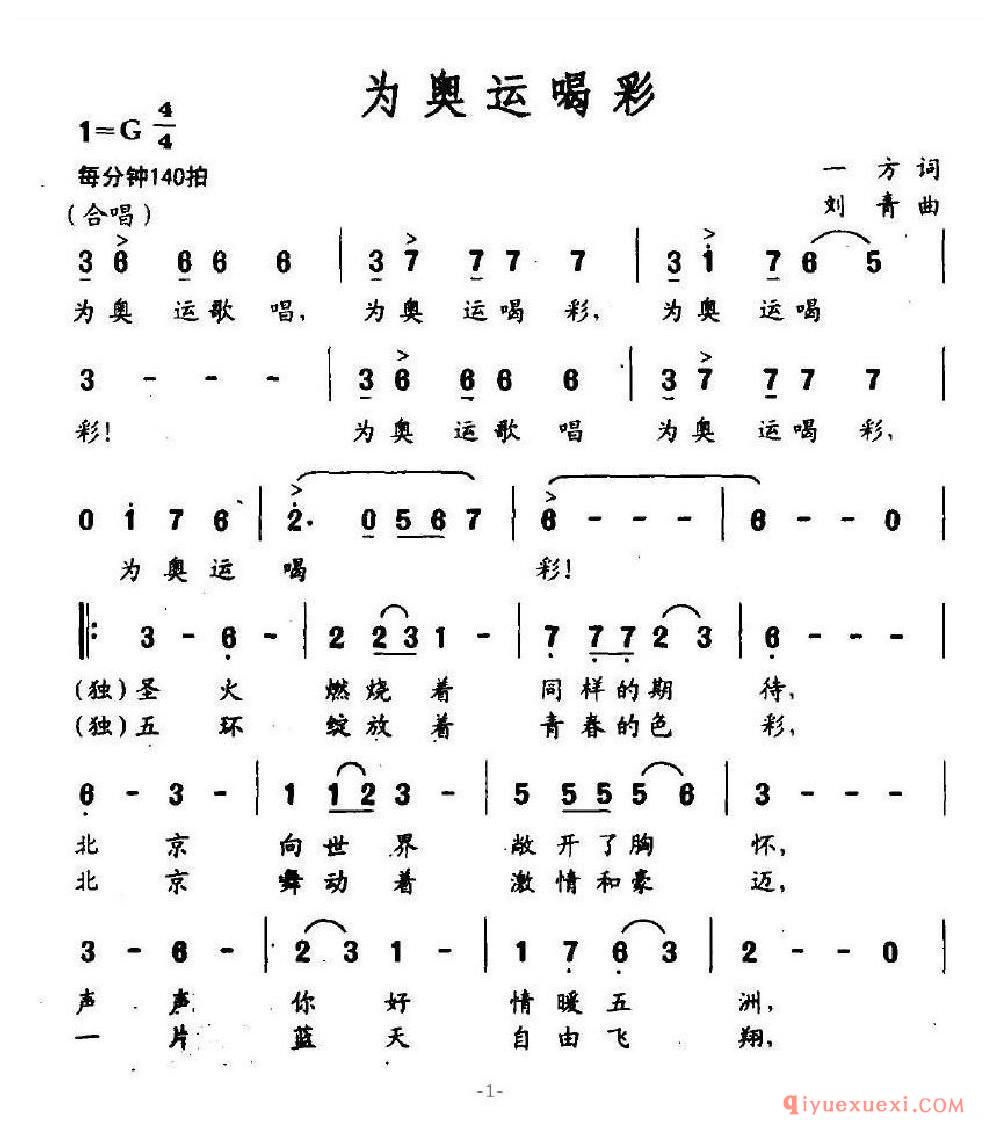 为奥运喝彩
1=G 4/4
每分钟140拍
一 方 词
刘 青 曲
(合唱)
3 6 6 6 6 | 3 7 7 7 7 | 3 1 7 6 5 |
为奥 运歌 唱, 为奥 运喝 彩, 为奥 运喝
3 - - - | 3 6 6 6 6 | 3 7 7 7 7 |
彩! 为奥 运歌 唱 为奥 运喝 彩,
0 1 7 6 | 2. 0 5 6 7 | 6 - - - | 6 - - 0 |
为 奥 运 喝 彩!
‖: 3 - 6 - | 2 2 3 1 - | 7 7 7 2 3 | 6 - - - |
(独)圣 火 燃 烧 着 同 样 的 期 待,
(独)五 环 绽 放 着 青 春 的 色 彩,
6 - 3 - | 1 1 2 3 - | 5 5 5 5 6 | 3 - - - |
北 京 向 世 界 敞 开 了 胸 怀,
北 京 舞 动 着 激 情 和 豪 迈,
3 - 6 - | 2 3 1 - | 1 7 6 3 | 2 - - 0 |
声 声 你 好 情 暖 五 洲,
一 片 蓝 天 自 由 飞 翔,
-1-
qiyuexuexi.com